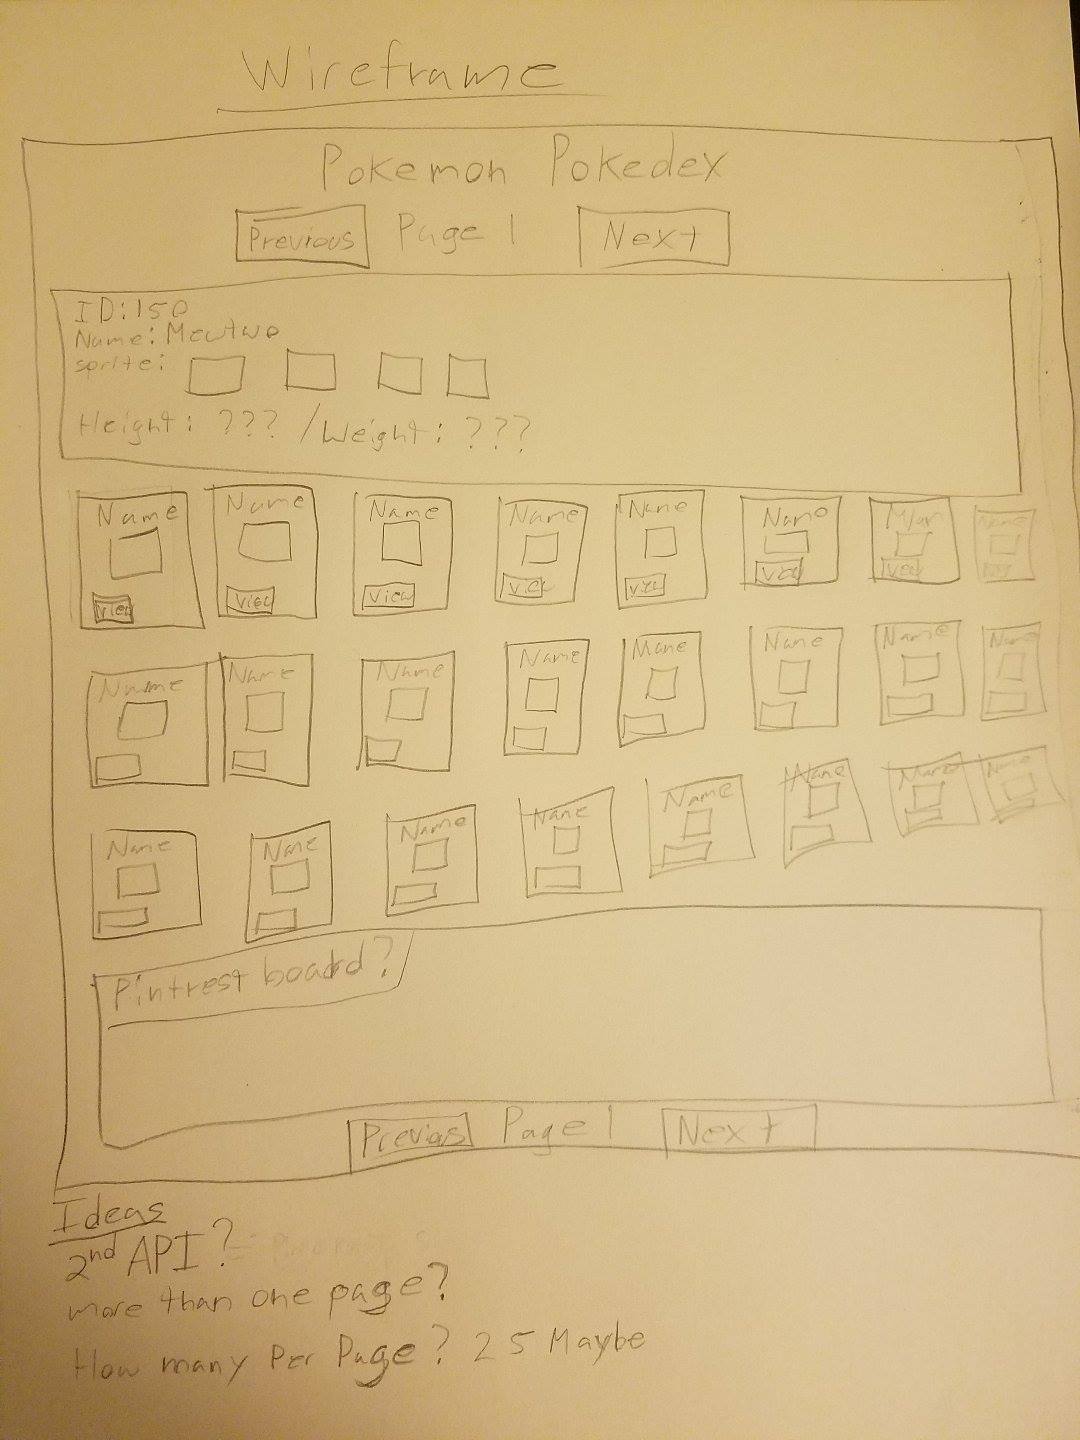 Wireframe
Pokemon Pokedex
Previous Page 1 Next
ID:150
Name: Mewtwo
sprite:
Height: ??? / Weight: ???
Name Name Name Name Name Name Name
View View View View View View View
Name Name Name Name Name Name Name Name
Name Name Name Name Name Name Name Name
Pintrest board?
Previos Page 1 Next
Ideas
2nd API?
more than one page?
How many Per Page? 25 Maybe